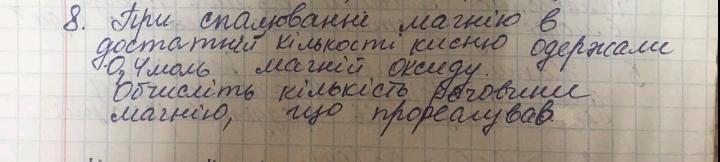 8. При спалюванні магнію в
достатній кількості кисню одержали
0,4моль магній оксиду.
Обчисліть кількість речовини
магнію, що прореагував.